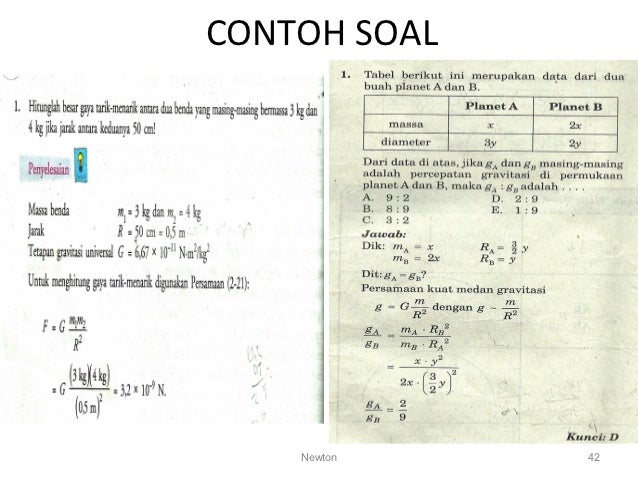 CONTOH SOAL
1. Hitunglah besar gaya tarik-menarik antara dua benda yang masing-masing bermassa 3 kg dan
4 kg jika jarak antara keduanya 50 cm!
Penyelesaian
Massa benda m₁ = 3 kg dan m₂ = 4 kg
Jarak R = 50 cm = 0,5 m
Tetapan gravitasi universal G = 6,67 × 10⁻¹¹ N·m²/kg²
Untuk menghitung gaya tarik-menarik digunakan Persamaan (2-21):
F = G m₁m₂ / R²
= G (3 kg)(4 kg) / (0,5 m)² = 3,2 × 10⁻⁹ N.
1. Tabel berikut ini merupakan data dari dua
buah planet A dan B.
Planet A Planet B
massa x 2x
diameter 3y 2y
Dari data di atas, jika gA dan gB masing-masing
adalah percepatan gravitasi di permukaan
planet A dan B, maka gA : gB adalah . . . .
A. 9 : 2 D. 2 : 9
B. 8 : 9 E. 1 : 9
C. 3 : 2
Jawab:
Dik: mA = x RA = 3/2 y
mB = 2x RB = y
Dit: gA – gB?
Persamaan kuat medan gravitasi
g = G m/R² dengan g ~ m/R²
gA/gB = mA · RB² / mB · RA²
= x · y² / 2x · (3/2 y)²
gA/gB = 2/9
Kunci: D
Newton
42